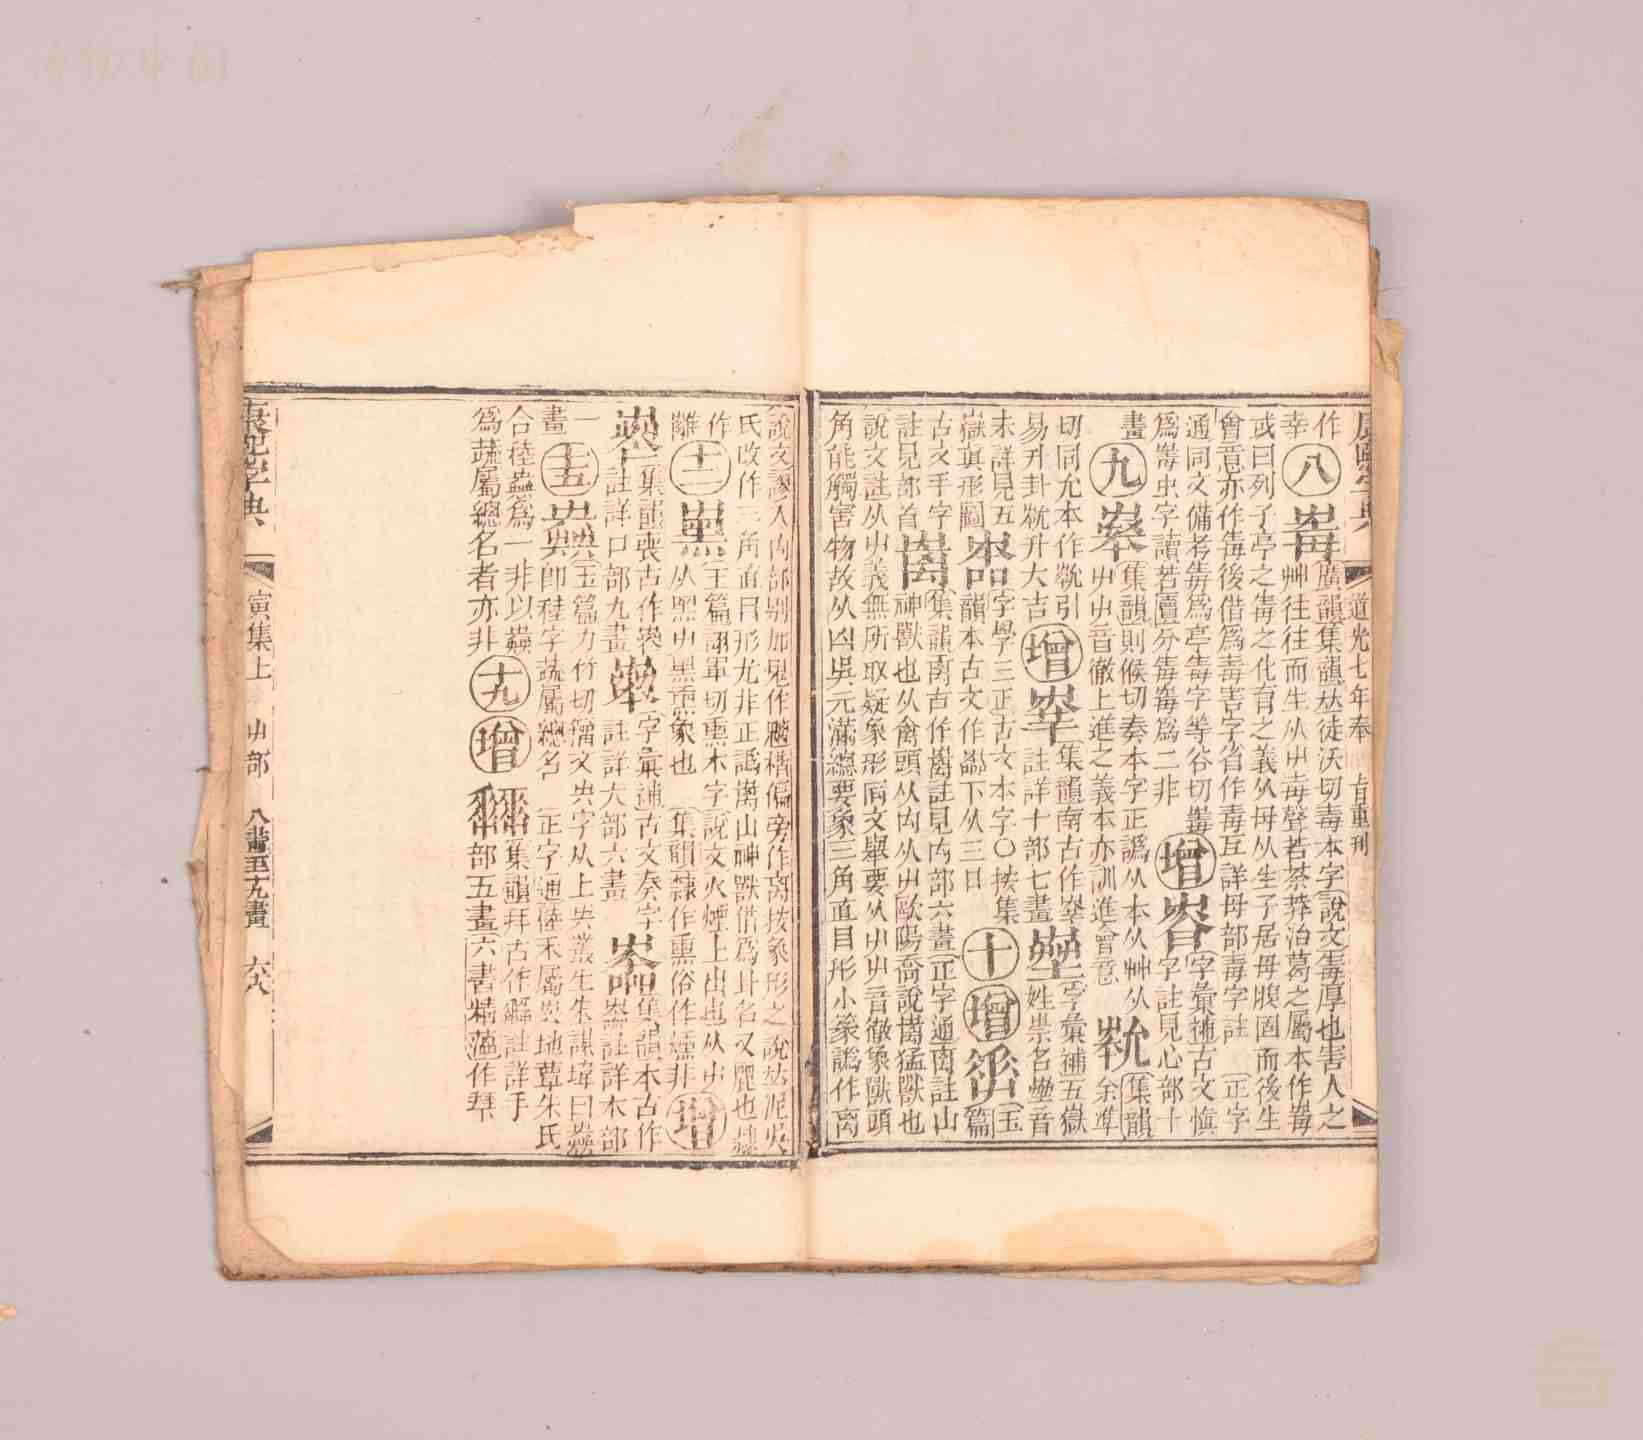 康熙字典 道光七年奉 旨重刊
作 廣韻集韻𠀤徒沃切毒本字說文毒厚也害人之
幸 八 艸往往而生从屮毒聲若荼莽治葛之屬本作
或曰列子亭之毒之化育之義从毋从生子居母腹固而後生
會意亦作毒後借爲毒害字省作毒互詳毋部毒字註 正字
通同文備考毒爲亭毒字等谷切 字彙補古文愼
爲毒虫字讀若竇分毒爲二非 增 字註見心部十
畫 集韻則候切奏本字正譌从本从艸从 集韻
九 屮屮音徹上進之義本亦訓進會意 余準
切同允本作㽙引 集韻南古作 字彙補五嶽
易升卦㽙升大吉 增 註詳十部七畫 姓崇名 音
未詳見五 字學三正古文本字〇按集
嶽眞形圖 韻本古文作 下从三日 十 增 玉篇
古文手字 集韻禼古作 註見禸部六畫正字通禼註山
註見部首 神獸也从禽頭从禸从屮歐陽喬說 猛獸也
說文註从屮義無所取疑象形同文舉要从屮屮音徹象獸頭
角能觸害物故从凶吳元滿總要象三角直目形小篆譌作离
說文謬入禸部別加鬼作魑楷偏旁作离按象形之說𠀤泥吳
氏改作三角直目形尤非正譌 山神獸借爲卦名又麗也隷
作 玉篇詡軍切熏本字說文火煙上出也从屮
離 十二 从黑屮黑熏象也 集韻隷作熏俗作燻非 增
集韻喪古作 字彙補古文奏字 集韻本古作
註詳口部九畫 註詳大部六畫 註詳木部
一 玉篇力竹切籀文 字从上 叢生朱謀㙔曰 
畫 十五 卽稑字蔬屬總名 正字通稑禾屬 地蕈朱氏
合稑 爲一非以 集韻拜古作 註詳手
爲蔬屬總名者亦非 十九 增 部五畫六書精薀作𢫶
康熙字典 寅集上 屮部 八畫至十九畫 六八